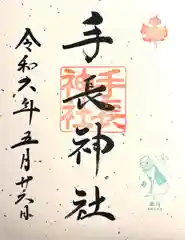 手長神社
手長神社
令和六年五月廿六日